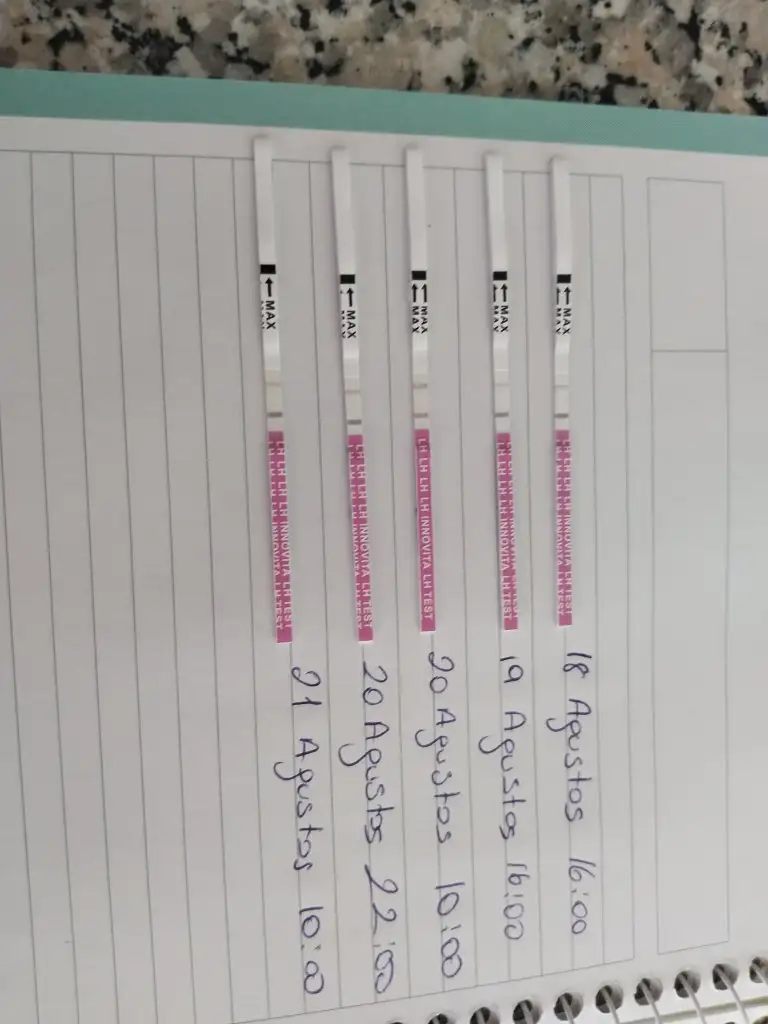 ←MAX
LH LH LH LH INNOVITA LH TEST
18 Agustos 16:00
←MAX
LH LH LH LH INNOVITA LH TEST
19 Agustos 16:00
←MAX
LH LH LH LH INNOVITA LH TEST
20 Agustos 10:00
←MAX
LH LH LH LH INNOVITA LH TEST
20 Agustos 22:00
←MAX
LH LH LH LH INNOVITA LH TEST
21 Agustos 10:00